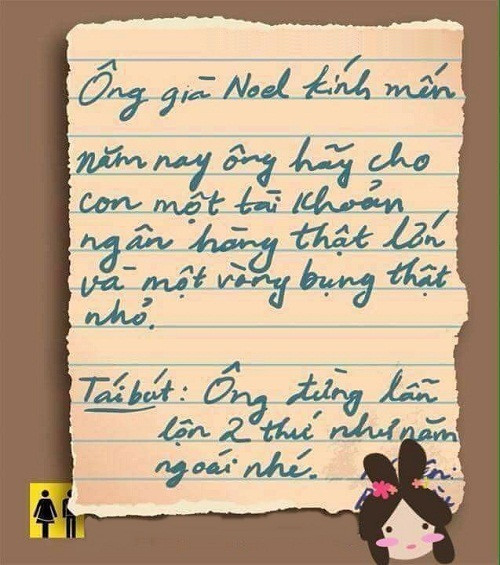 Ông già Noel kính mến
năm nay ông hãy cho
con một tài khoản
ngân hàng thật lớn
và một vòng bụng thật
nhỏ.
Tái bút: Ông đừng lẫn
lộn 2 thứ như năm
ngoái nhé.